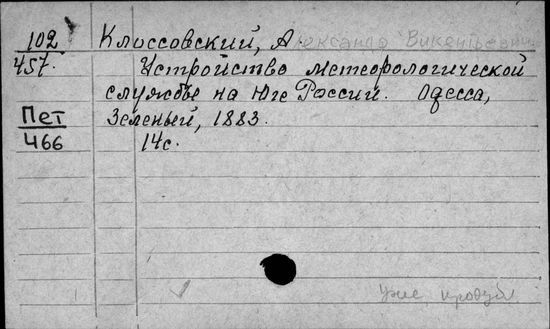 102
457.
Клоссовский, А. лександр Викентьевич
Устройство метеорологической
службы на Юге России. Одесса,
Зеленый, 1883.
14 с.
Пет
466
Уже